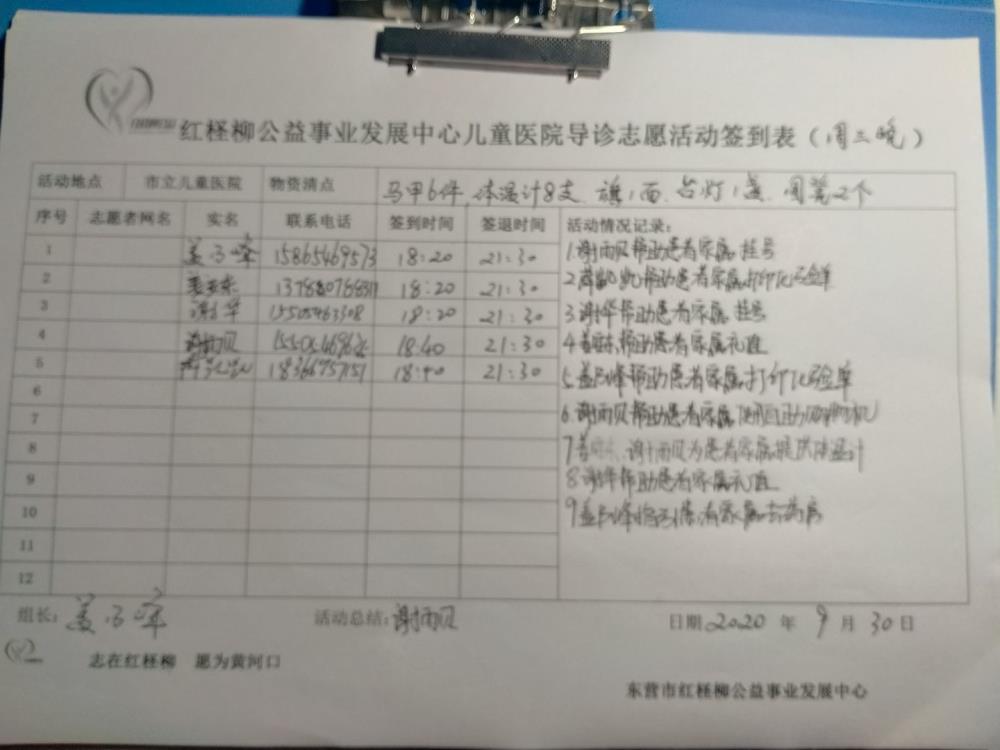 红柽柳公益事业发展中心儿童医院导诊志愿活动签到表（周三晚）
活动地点 市立儿童医院 物资清点 马甲6件 体温计8支 旗1面 台灯1盏 2个
序号 志愿者网名 实名 联系电话 签到时间 签退时间 活动情况记录：
1 15865469573 18:20 21:30 1.谢雨贝帮助患者家属挂号
2 18:20 21:30 2. 帮助患者家属打印化验单
3 谢华 15505463308 18:20 21:30 3谢华帮助患者家属挂号
4 谢雨贝 18:40 21:30 4 帮助患者家属充值
5 18366757151 18:40 21:30 5. 帮助患者家属打印化验单
6 6.谢雨贝帮助患者家属使用自助机
7 7 谢雨贝为患者家属提供体温计
8 8谢华帮助患者家属充值
9 9 患者家属去药房
10
11
12
组长： 活动总结：谢雨贝 日期2020年9月30日
志在红柽柳 愿为黄河口
东营市红柽柳公益事业发展中心